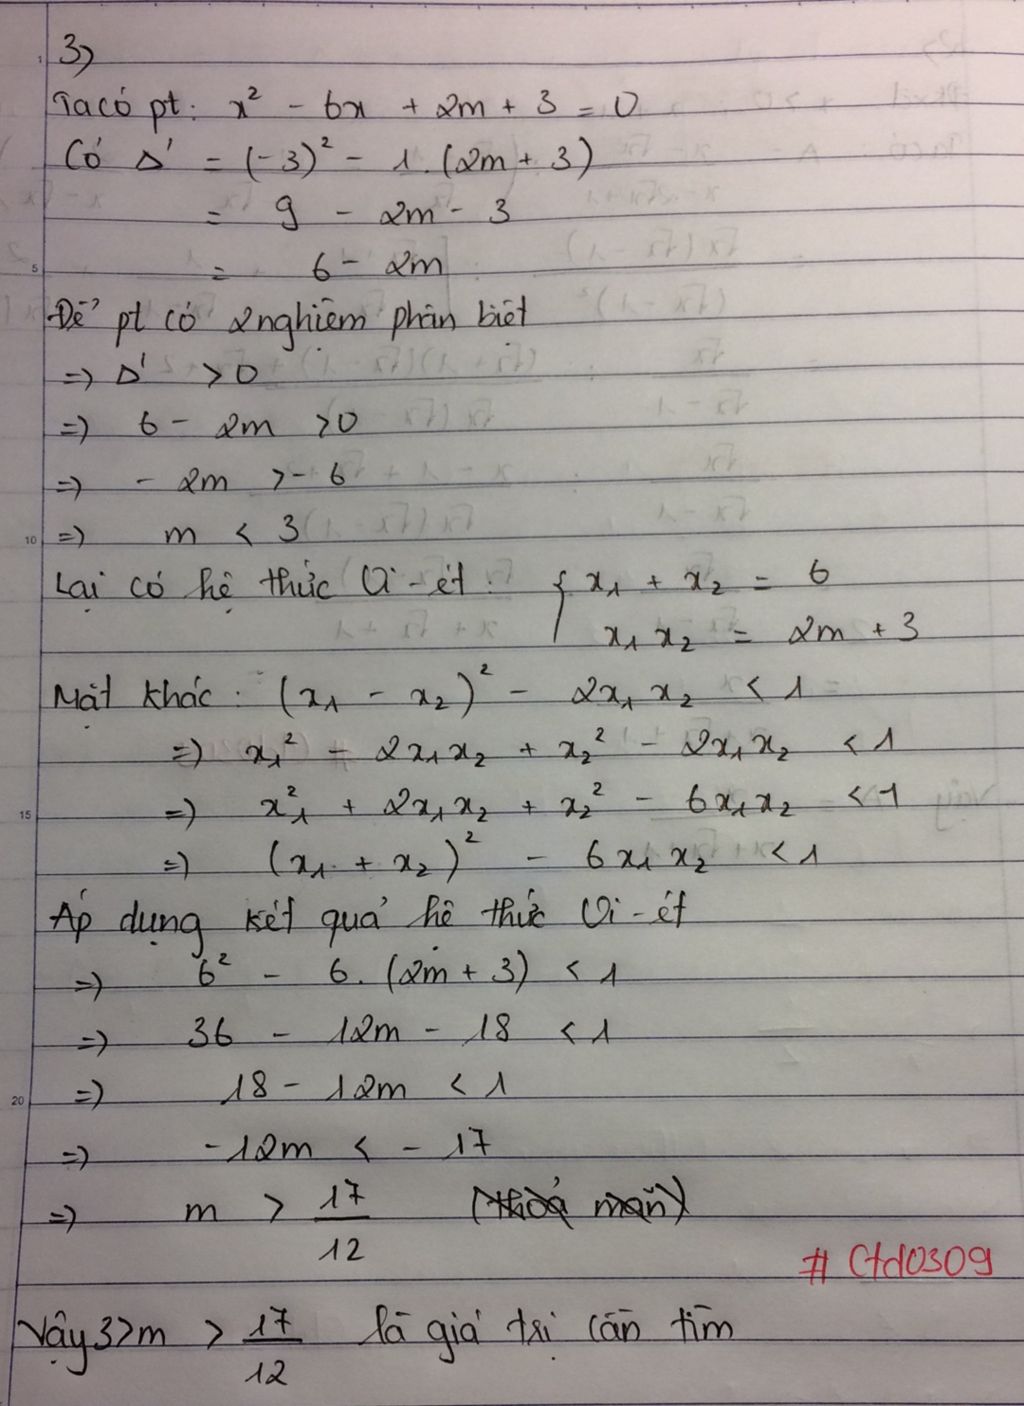 3)
Ta có pt: x² - 6x + 2m + 3 = 0
Có Δ' = (-3)² - 1.(2m + 3)
= 9 - 2m - 3
5
= 6 - 2m
Để pt có 2 nghiệm phân biệt
=> Δ' > 0
=> 6 - 2m > 0
=> - 2m > - 6
10
=> m < 3
Lại có hệ thức Vi-ét: { x₁ + x₂ = 6
x₁ x₂ = 2m + 3
Mặt khác: (x₁ - x₂)² - 2x₁ x₂ < 1
=> x₁² - 2x₁x₂ + x₂² - 2x₁x₂ < 1
15
=> x₁² + 2x₁x₂ + x₂² - 6x₁x₂ < 1
=> (x₁ + x₂)² - 6x₁x₂ < 1
Áp dụng kết quả hệ thức Vi-ét
=> 6² - 6.(2m + 3) < 1
=> 36 - 12m - 18 < 1
20
=> 18 - 12m < 1
=> -12m < - 17
=> m > 17/12 (thoả mãn)
# Ctd0309
Vậy 3>m > 17/12 là giá trị cần tìm